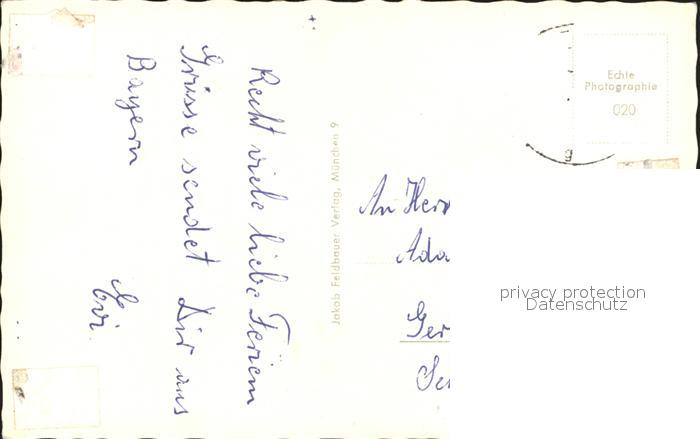 Recht viele liebe Ferien
Grüsse sendet Dir aus
Bayern
Evi.
Jakob Feldbauer Verlag, München 9
Echte
Photographie
020
An Herr
Ada
Ger
privacy protection
Datenschutz